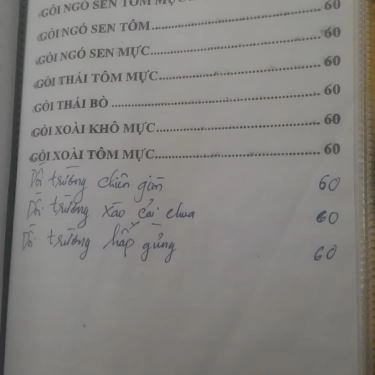 GỎI NGÓ SEN TÔM MỰC 60
GỎI NGÓ SEN TÔM 60
GỎI NGÓ SEN MỰC 60
GỎI THÁI TÔM MỰC 60
GỎI THÁI BÒ 60
GỎI XOÀI KHÔ MỰC 60
GỎI XOÀI TÔM MỰC 60
Dồi trường chiên giòn 60
Dồi trường xào cải chua 60
Dồi trường hấp gừng 60